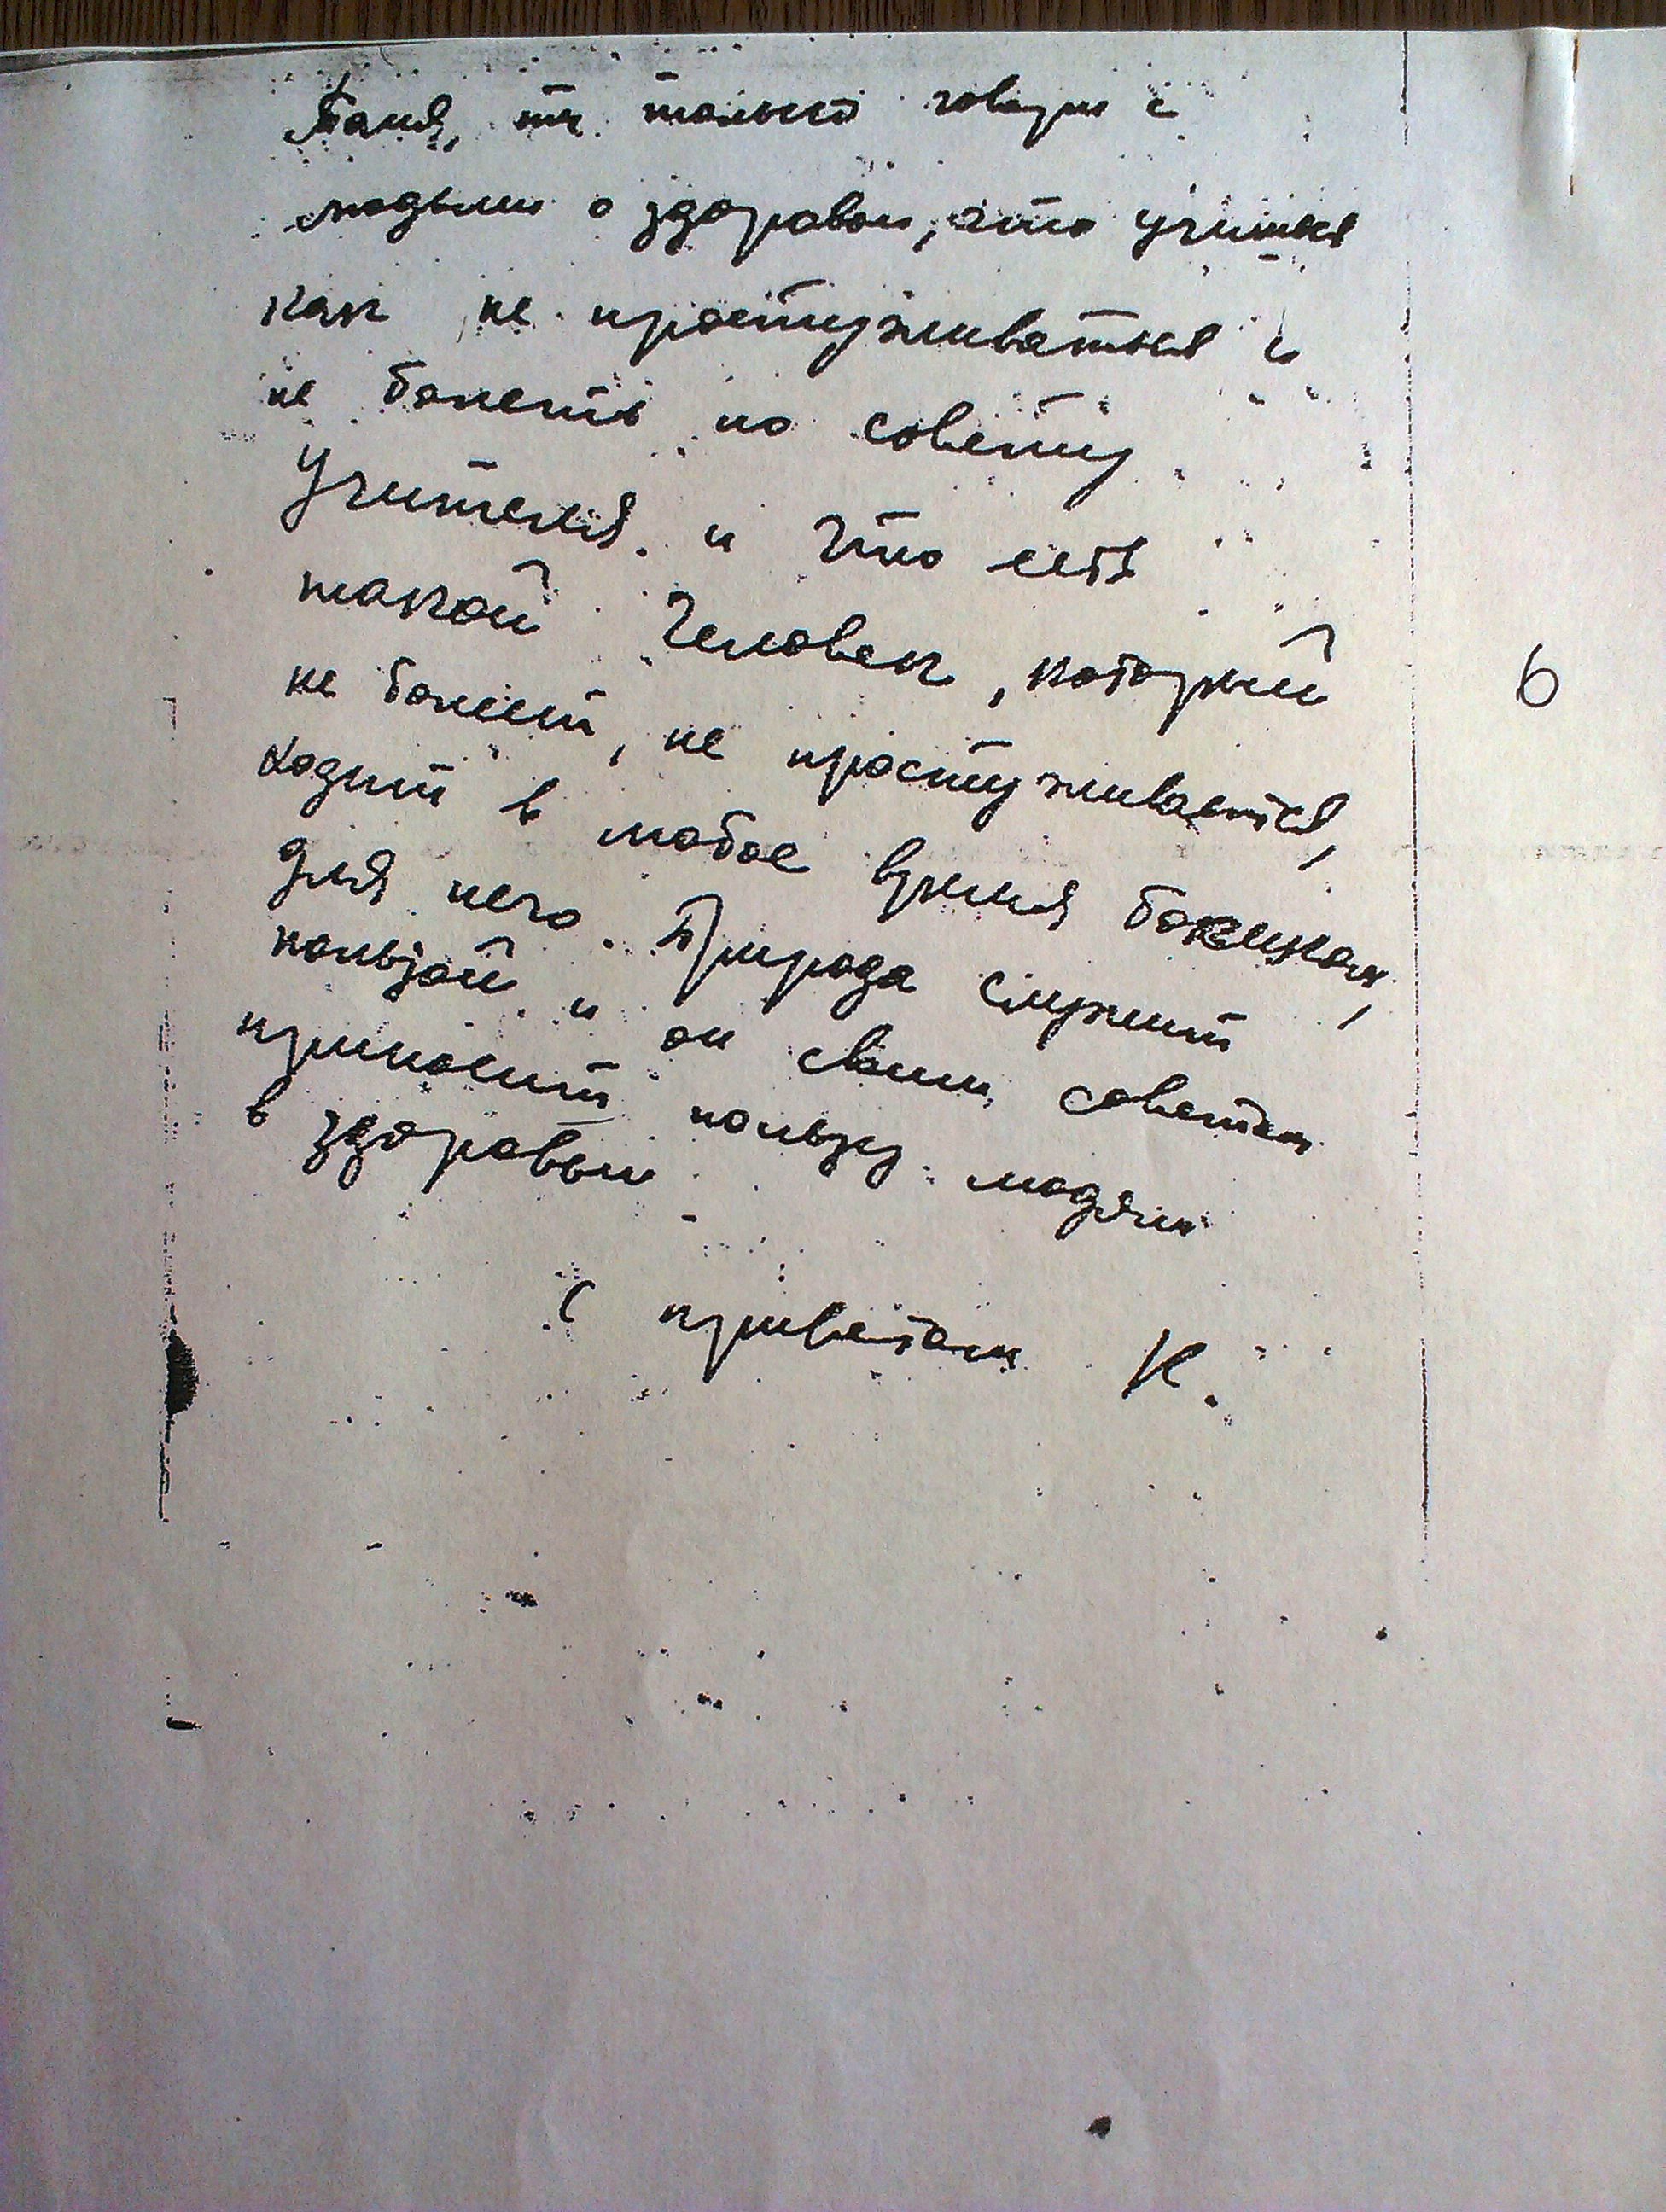 Таня, ты только говори с
людьми о здоровьи, что учиться
как не простуживаться и
не болеть по совету
Учителя. и что есть
такой Человек, который
не болеит, не простуживается,
ходит в любое время босиком,
6
для него. Природа служит
пользой и он своим советом
приносит пользу людям
в здоровьи
С приветом К.